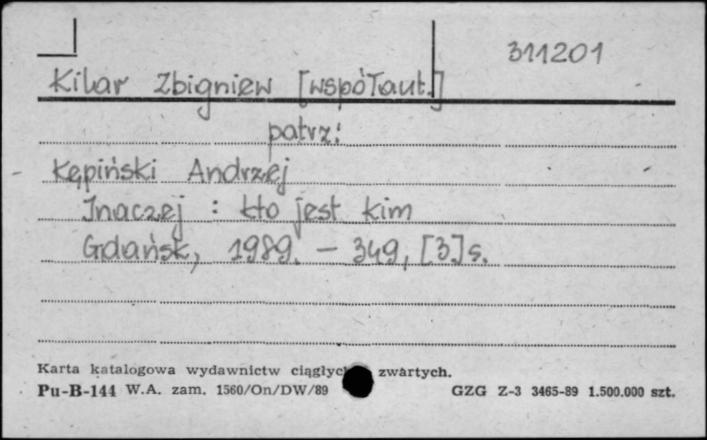 311201
Kilar Zbigniew [współaut.]
patrz:
Kępiński Andrzej
Inaczej : kto jest kim
Gdańsk, 1989. — 349, [3] s.
Karta katalogowa wydawnictw ciągłyc zwartych.
Pu-B-144 W.A. zam. 1560/On/DW/89 GZG Z-3 3465-89 1.500.000 szt.